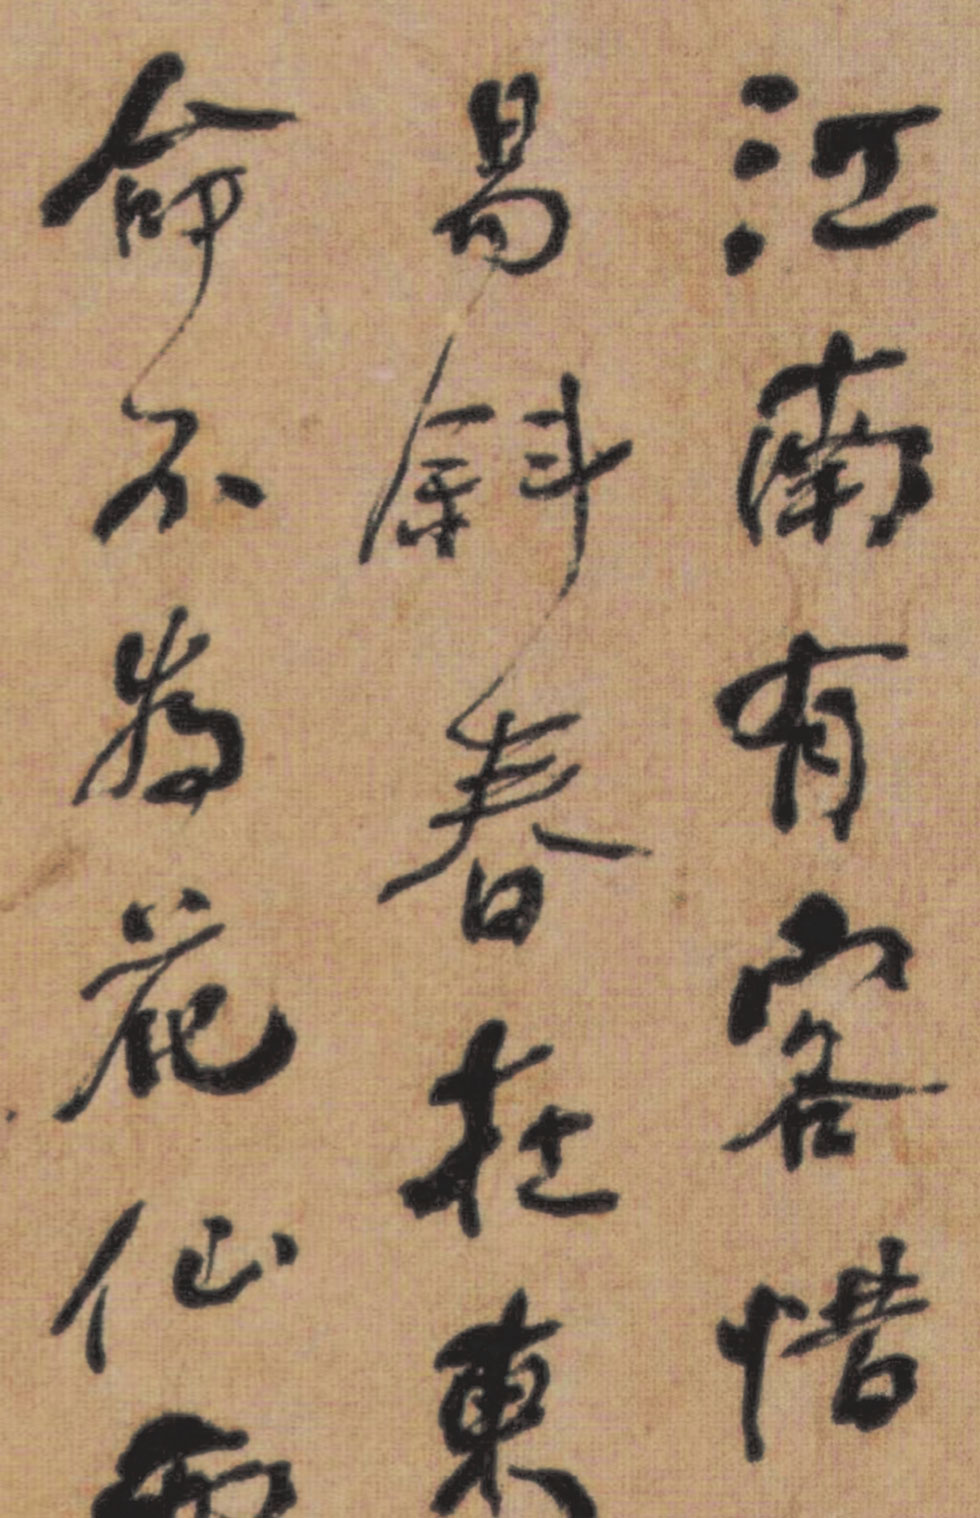 江南有客惜
易斜春在東
命不為花仙